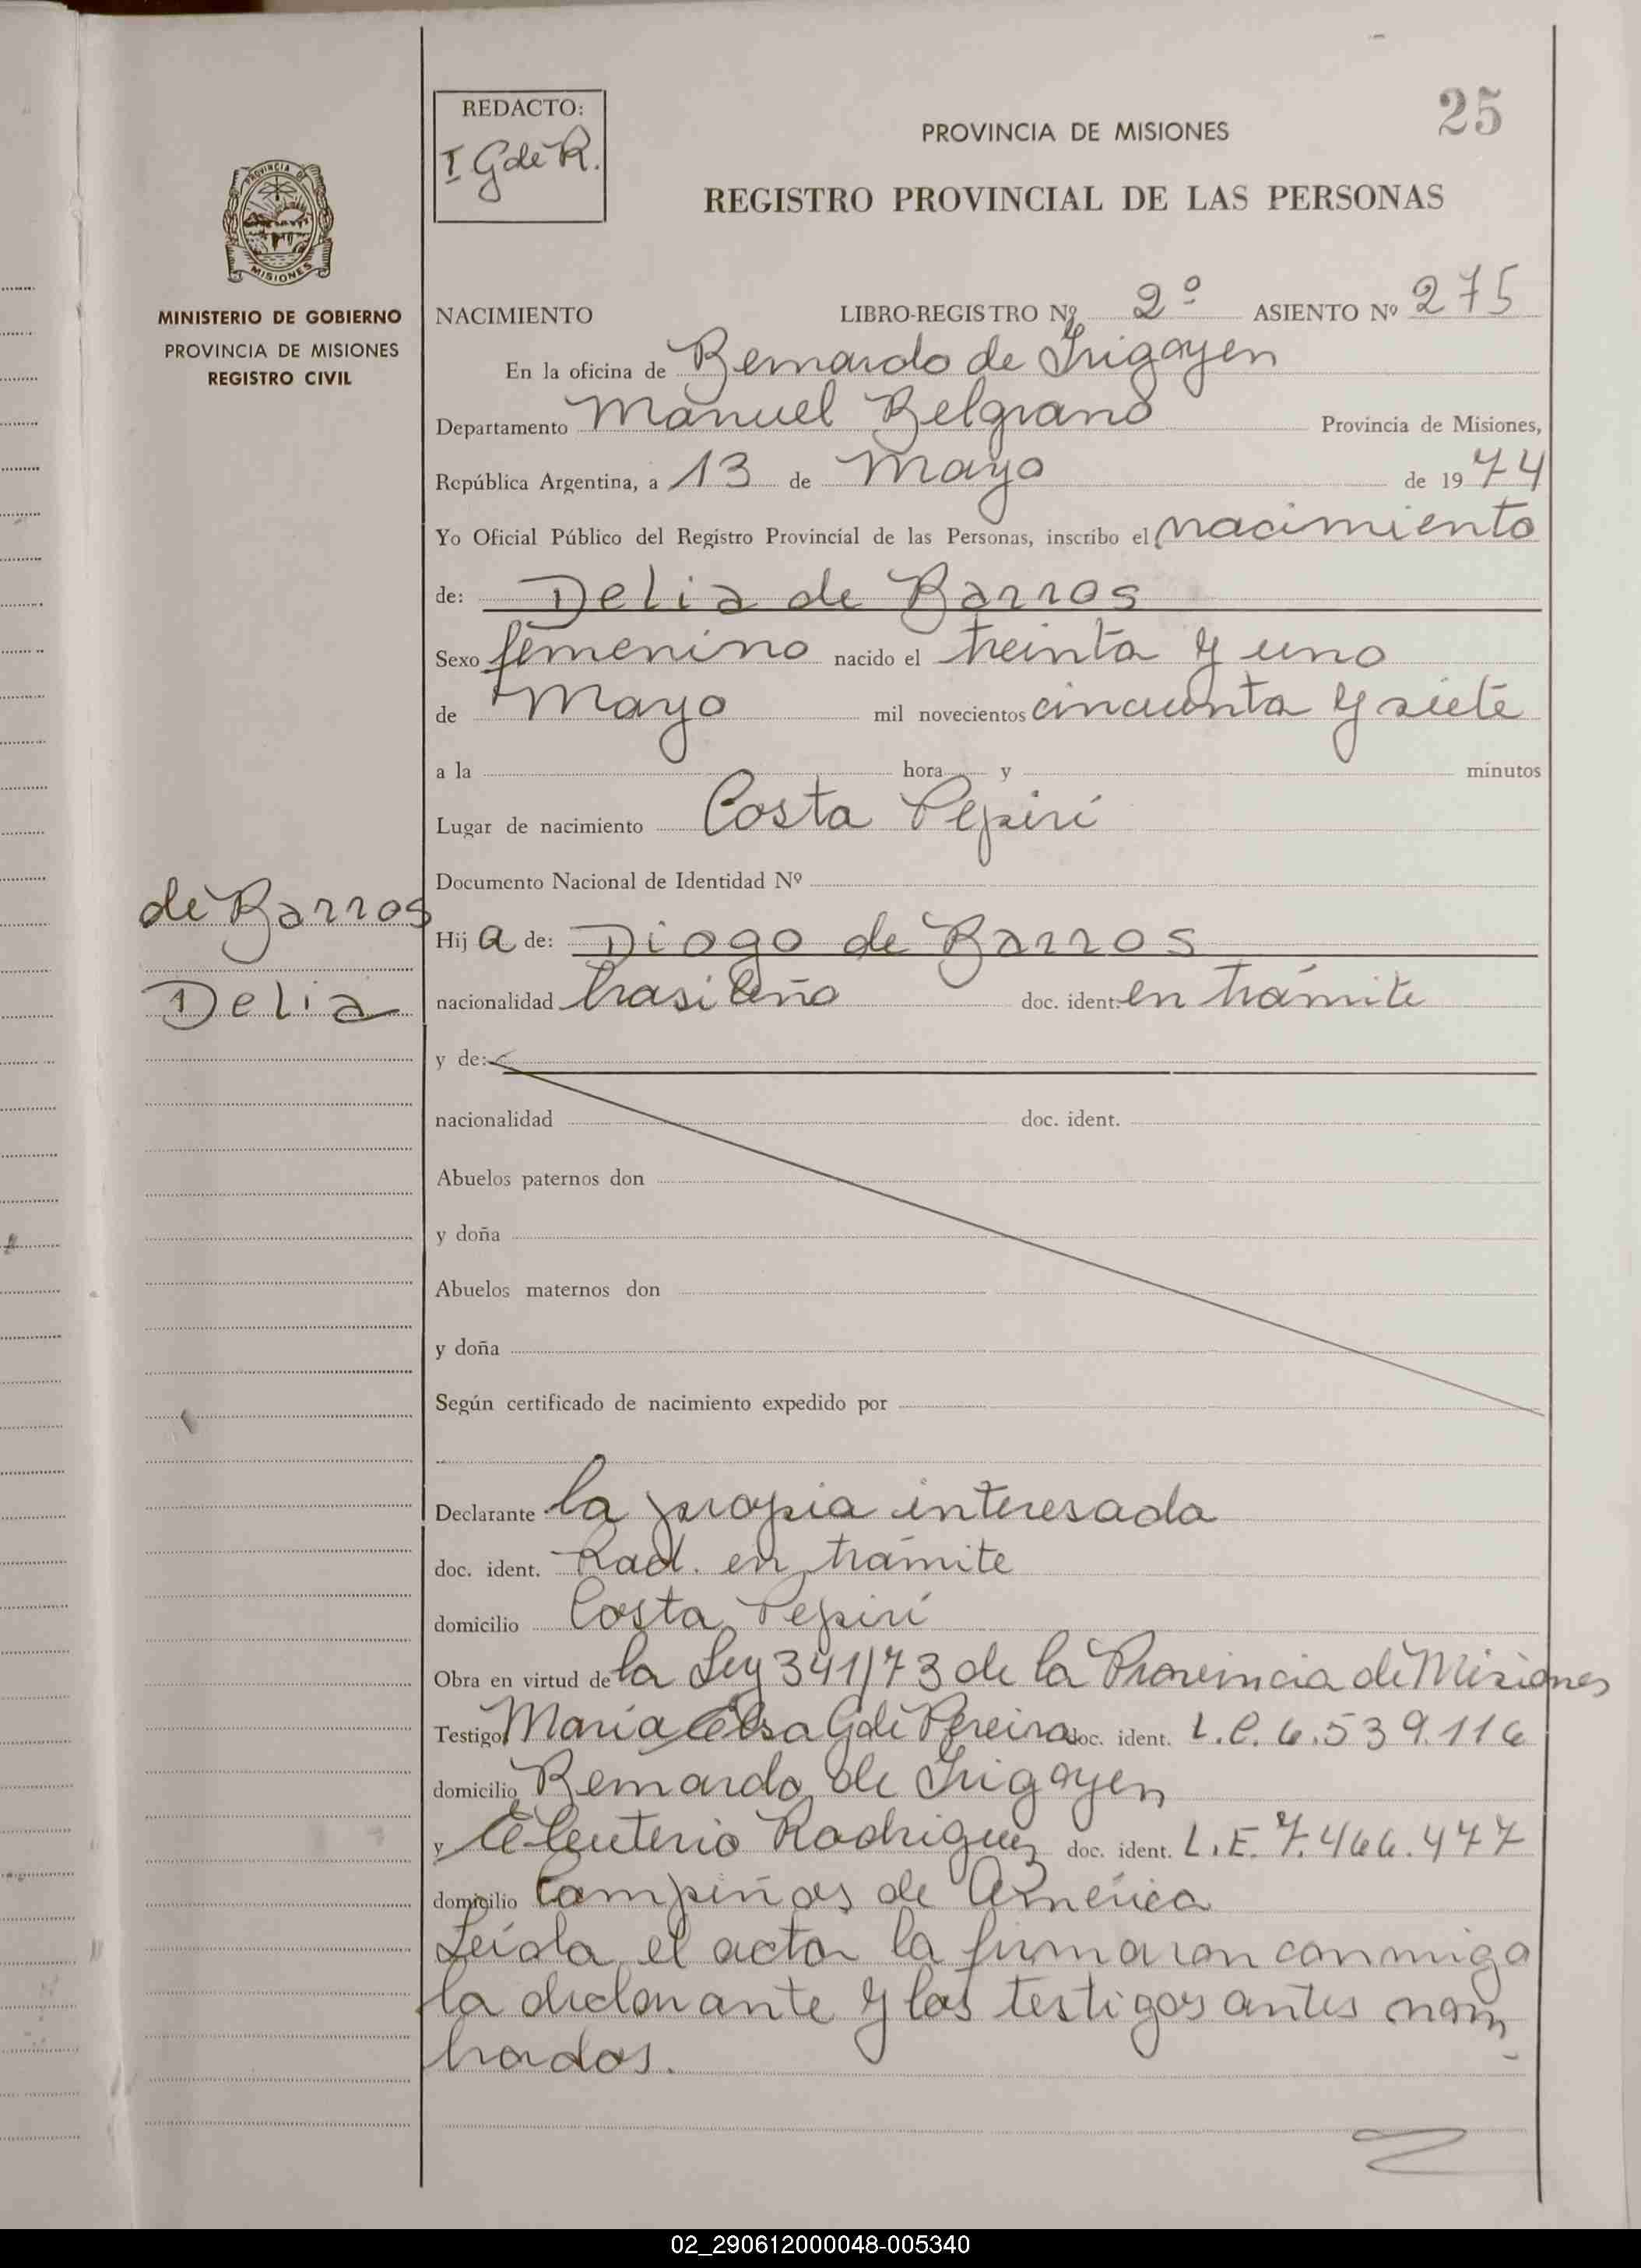 25
REDACTO:
I G de R.
PROVINCIA DE MISIONES
REGISTRO PROVINCIAL DE LAS PERSONAS
PROVINCIA DE
MISIONES
MINISTERIO DE GOBIERNO
PROVINCIA DE MISIONES
REGISTRO CIVIL
NACIMIENTO LIBRO-REGISTRO Nº 2º ASIENTO Nº 275
En la oficina de Bernardo de Irigoyen
Departamento Manuel Belgrano Provincia de Misiones,
República Argentina, a 13 de Mayo de 1974
Yo Oficial Público del Registro Provincial de las Personas, inscribo el nacimiento
de: Delia de Barros
Sexo femenino nacido el treinta y uno
de Mayo mil novecientos cincuenta y siete
a la hora y minutos
Lugar de nacimiento Costa Pepirí
Documento Nacional de Identidad Nº
de Barros
Delia
Hija de: Diogo de Barros
nacionalidad brasileño doc. ident. en trámite
y de:
nacionalidad doc. ident.
Abuelos paternos don
y doña
Abuelos maternos don
y doña
Según certificado de nacimiento expedido por
Declarante la propia interesada
doc. ident. Rad. en trámite
domicilio Costa Pepirí
Obra en virtud de la Ley 341/73 de la Provincia de Misiones
Testigo María Elsa G de Pereira doc. ident. L.C. 6.539.116
domicilio Bernardo de Irigoyen
y Eleuterio Rodriguez doc. ident. L.E. 7.466.477
domicilio Campiñas de América
Leída el acta la firmaron conmigo
la declarante y los testigos antes nom-
brados.
02_290612000048-005340